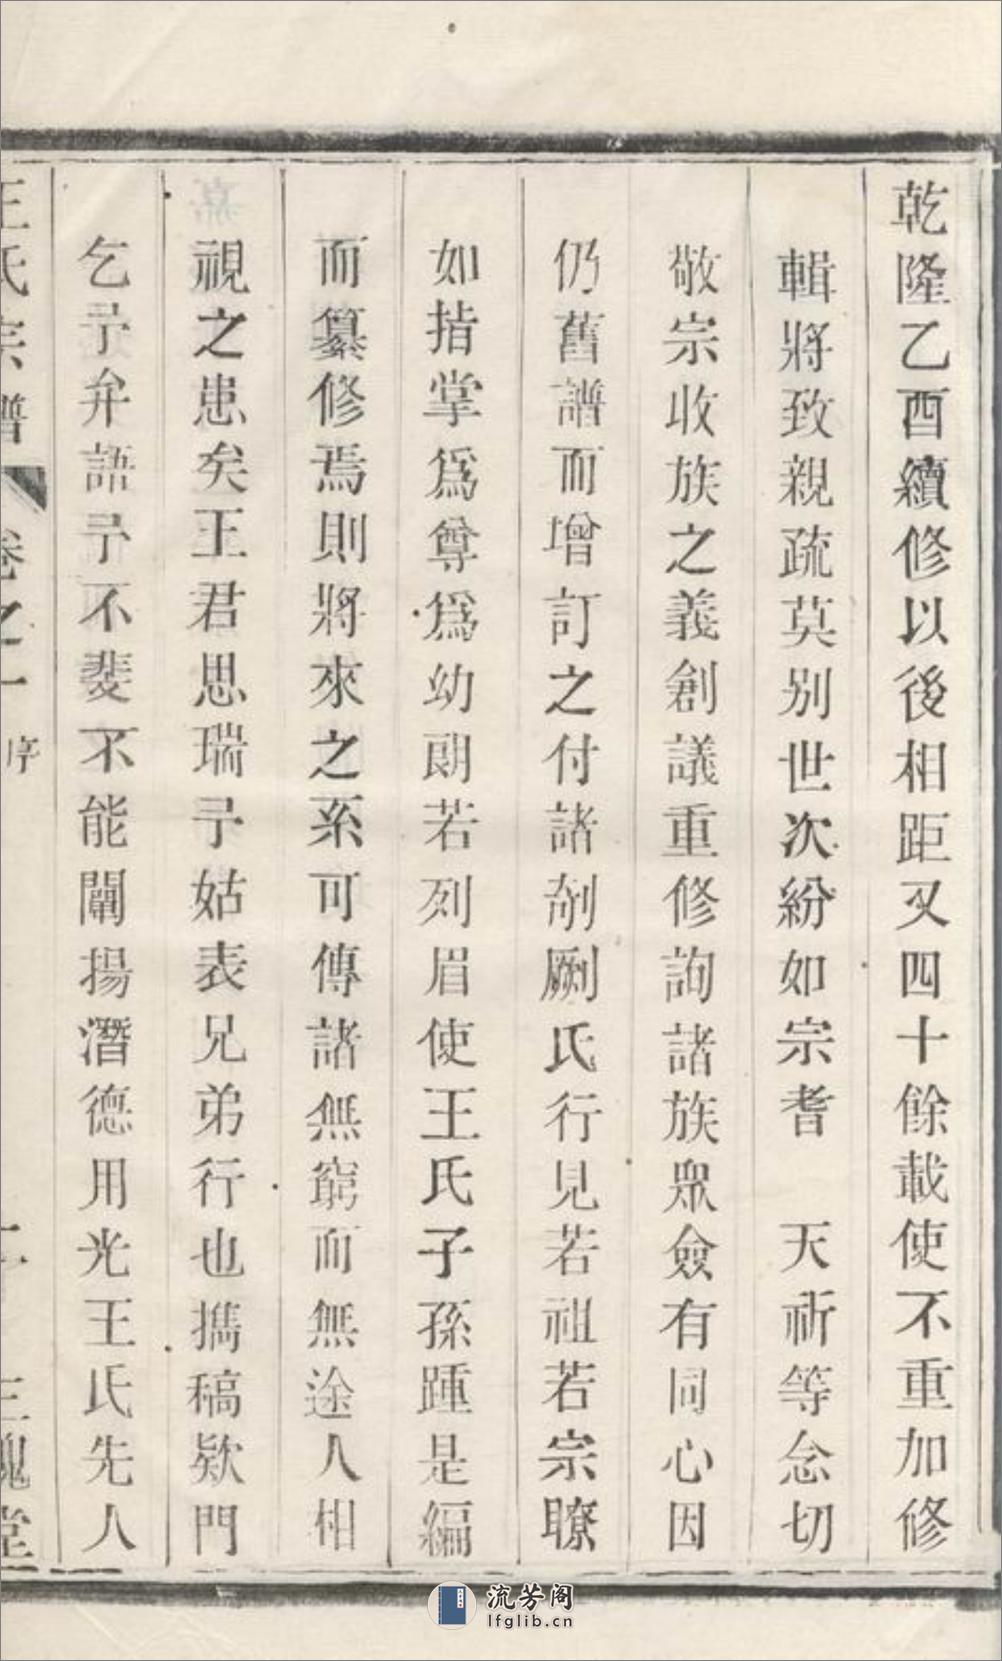 乾隆乙酉續修以後相距又四十餘載使不重加修
輯將致親疏莫别世次紛如宗耆　天祈等念切
敬宗收族之義創議重修詢諸族眾僉有同心因
仍舊譜而增訂之付諸剞劂氏行見若祖若宗瞭
如指掌爲尊爲幼朗若列眉使王氏子孫踵是編
而纂修焉則將來之系可傳諸無窮而無途人相
視之患矣王君思瑞予姑表兄弟行也攜稿欵門
乞予弁語予不斐不能闡揚潛德用光王氏先人
王氏宗譜　卷之一　序　二　三槐堂
流芳阁
lfglib.cn